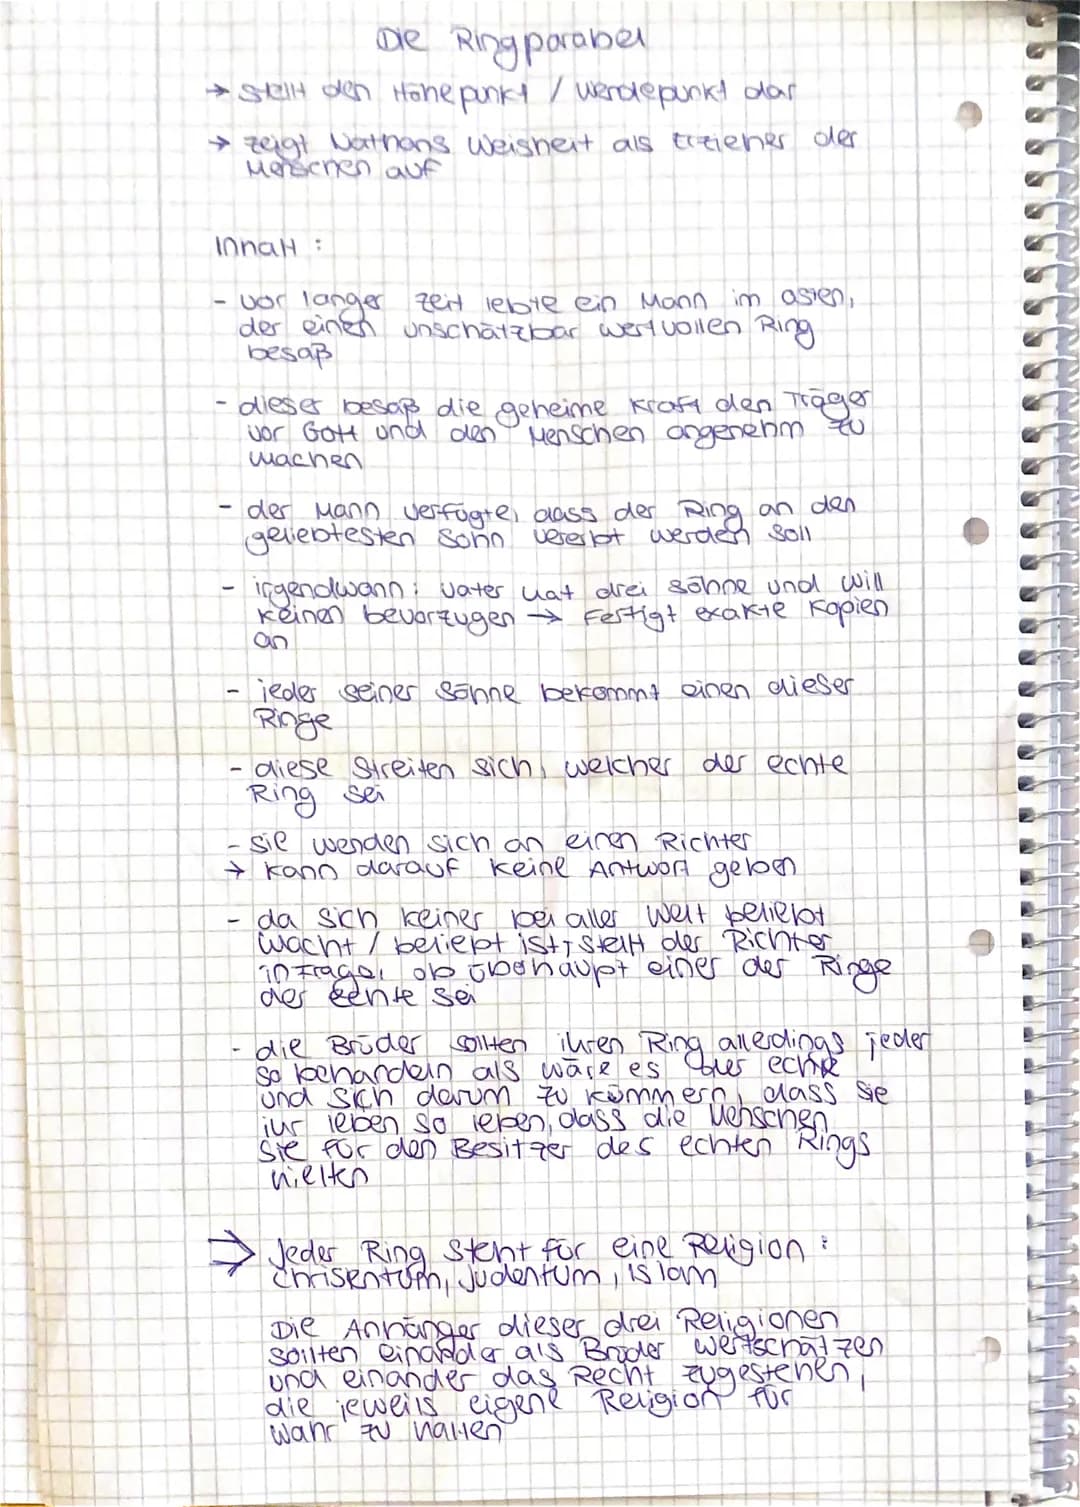 Die Ringparabel
→ stellt den Höhepunkt / Wendepunkt dar
→ zeigt Nathans Weisheit als Erzieher der
Menschen auf
Inhalt :
- vor langer Zeit lebte ein Mann im Osten,
der einen unschätzbar wertvollen Ring
besaß
- dieser besaß die geheime Kraft den Träger
vor Gott und den Menschen angenehm zu
machen
- der Mann verfügte, dass der Ring an den
geliebtesten Sohn vererbt werden soll
- irgendwann: Vater hat drei Söhne und will
keinen bevorzugen → Fertigt exakte Kopien
an
- jeder seiner Söhne bekommt einen dieser
Ringe
- diese streiten sich, welcher der echte
Ring sei
- sie wenden sich an einen Richter
→ kann darauf keine Antwort geben
- da sich keiner bei aller Welt beliebt
macht / beliebt ist, stellt der Richter
infrage, ob überhaupt einer der Ringe
der echte sei
- die Brüder sollten ihren Ring allerdings jeder
so behandeln als wäre es der echte
und sich darum zu kümmern, dass sie
ihr leben so leben, dass die Menschen
sie für den Besitzer des echten Rings
hielten
⇒ Jeder Ring steht für eine Religion :
Chrisentum, Judentum, Islam
Die Anhänger dieser drei Religionen
sollten einander als Brüder wertschätzen
und einander das Recht zugestehen,
die jeweils eigene Religion für
wahr zu halten